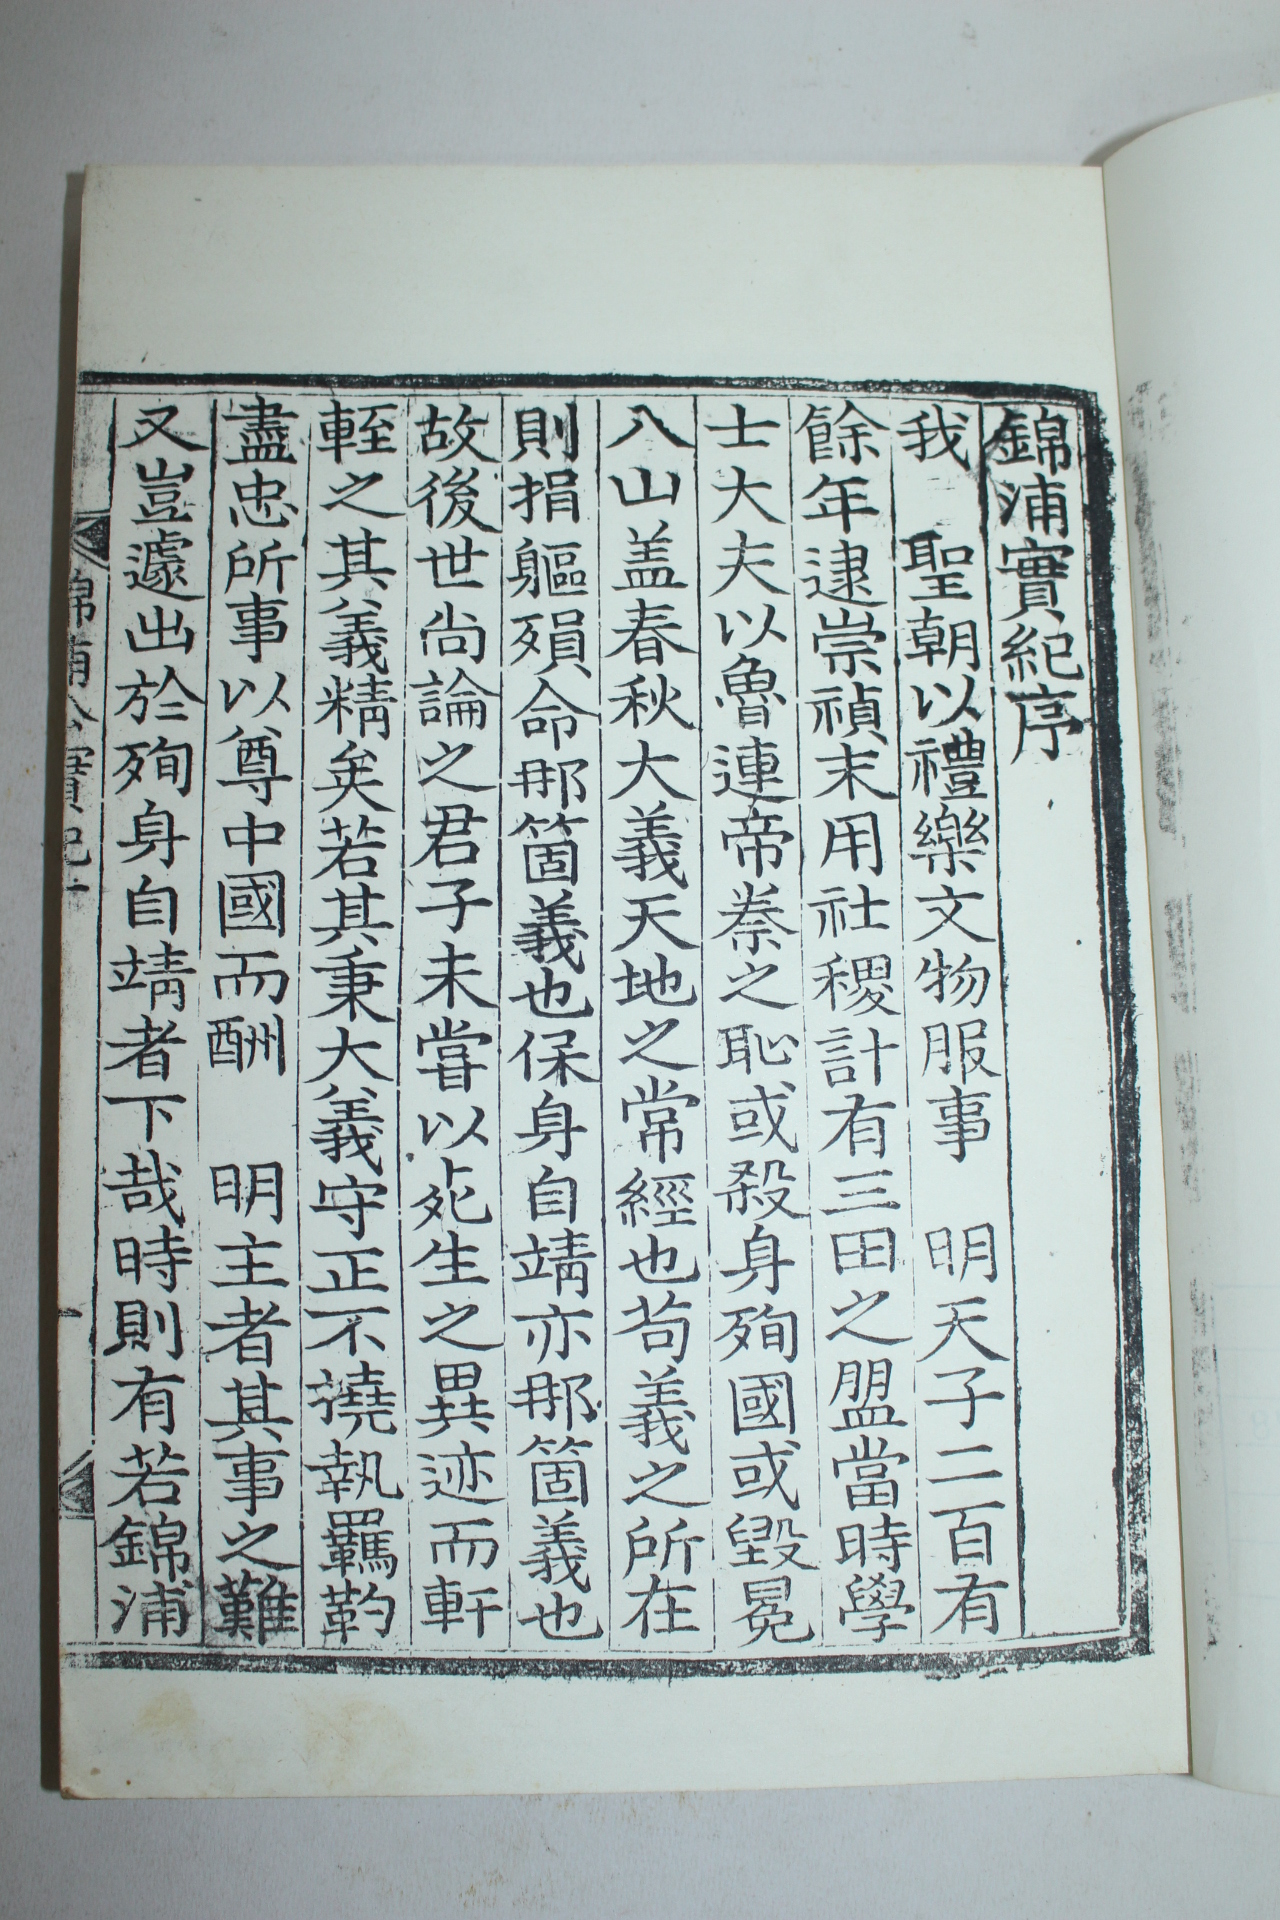 錦浦實紀序
我 聖朝以禮樂文物服事 明天子二百有
餘年逮崇禎末用社稷計有三田之盟當時學
士大夫以魯連帝秦之恥或殺身殉國或毀冕
入山盖春秋大義天地之常經也茍義之所在
則捐軀殞命那箇義也保身自靖亦那箇義也
故後世尙論之君子未嘗以死生之異迹而軒
輊之其義精矣若其秉大義守正不撓執羈靮
盡忠所事以尊中國而酬 明主者其事之難
又豈遽出於殉身自靖者下哉時則有若錦浦
錦浦公實紀